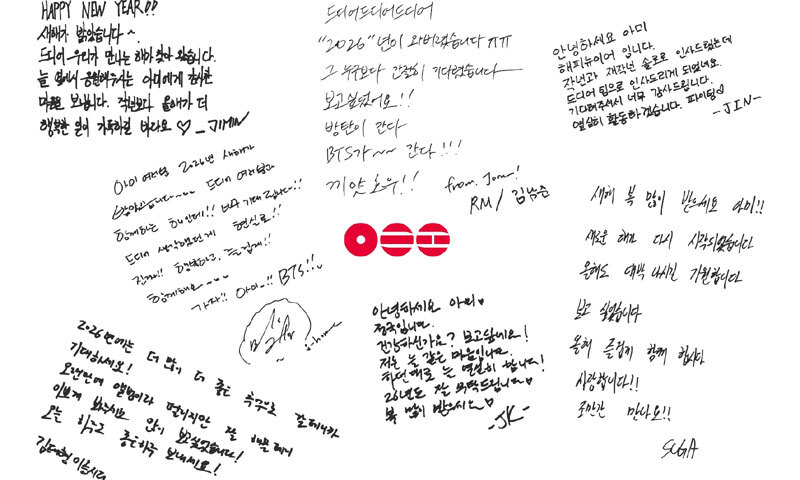 HAPPY NEW YEAR!!
새해가 밝았습니다~.
드디어 우리가 만나는 해가 찾아 왔습니다.
늘 옆에서 응원해주시는 아미에게 감사한
마음 보냅니다. 작년보다 올해가 더
행복한 일이 가득하길 바라요 ♡ -JIMIN
드디어드디어드디어
"2026"년이 와버렸습니다 ㅠㅠ
그 누구보다 간절히 기다렸습니다
보고싶었어요!!
방탄이 간다
BTS가~~ 간다!!!
끼얏호우!!
from. Joon!
RM / 김남준
안녕하세요 아미
해피뉴이어 입니다.
작년과 재작년 솔로로 인사드렸는데
드디어 팀으로 인사드리게 되었네요.
기다려주셔서 너무 감사드립니다.
열심히 활동하겠습니다. 파이팅♡
-JIN-
아미 여러분 2026년 새해가
밝았습니다~~~ 드디어 여러분과
함께하는 해인데!! 너무 기대됩니다!!
드디어 생각했던게 현실로!!
진짜!! 행복하고, 즐겁게!!
함께해요~~~
가자!! 아미!! BTS!!
j-hope
새해 복 많이 받으세요 아미!!
새로운 해가 다시 시작되었습니다
올해도 대박 나시길 기원합니다
보고 싶었습니다
올해 즐겁게 함께 합시다
사랑합니다!!
조만간 만나요!!
SUGA
안녕하세요 아미♡
정국입니다.
건강하신가요? 보고싶네요!
저는 늘 같은 마음입니다.
하던대로 늘 열심히 합니다!
26년도 잘 부탁드립니다♡
복 많이 받으시요♡
-JK-
2026년에는 더 많이 더 좋은 추억으로 갈테니까
기대하세요!
오랜만에 앨범이라 떨리지만 잘 해볼테니
이쁘게 봐주세요 많이 보고싶었습니다!
오늘 하루도 좋은하루 보내세요!
김태형 이올시다